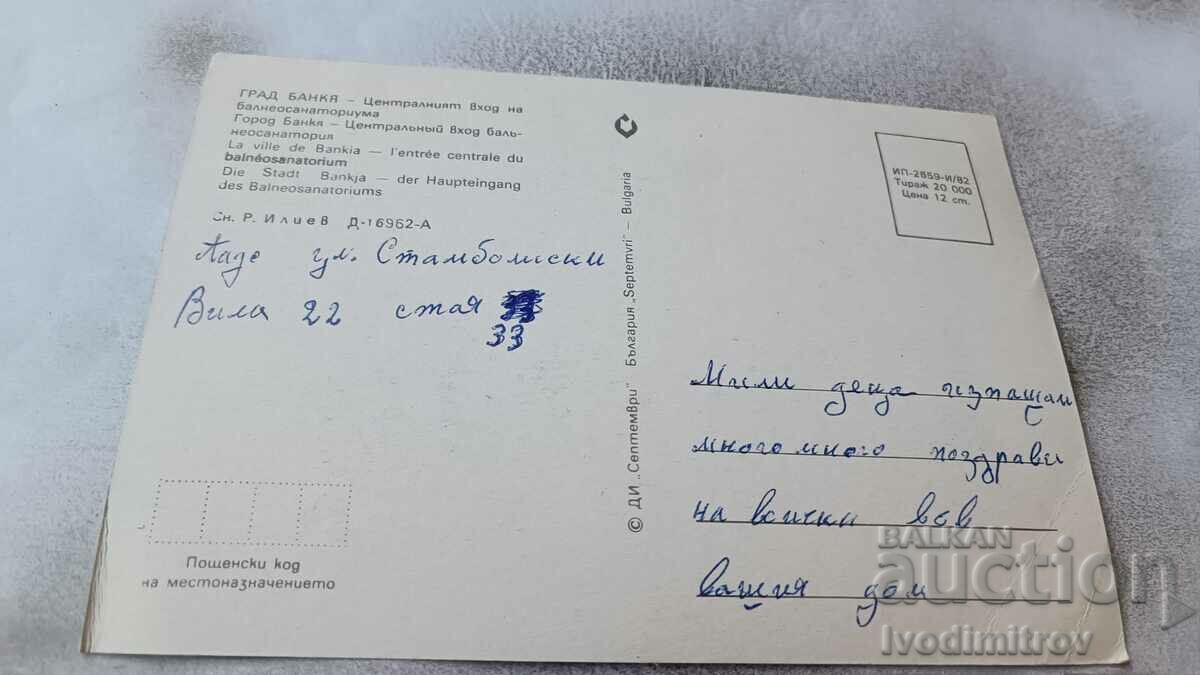 ГРАД БАНКЯ – Централният вход на
балнеосанаториума
Город Банкя – Центральный вход баль-
неосанатория
La ville de Bankia — l'entrée centrale du
balnéosanatorium
Die Stadt Bankja — der Haupteingang
des Balneosanatoriums
Сн. Р. Илиев Д-16962-А
ул. Стамболиски
Вила 22 стая
33
Пощенски код
на местоназначението
© ДИ „Септември" България „Septemvri" – Bulgaria
ИП-2859-И/82
Тираж 20 000
Цена 12 ст.
Мили деца изпащам
много много поздрави
на всички във
вашия дом
BALKAN
auction
Ivodimitrov